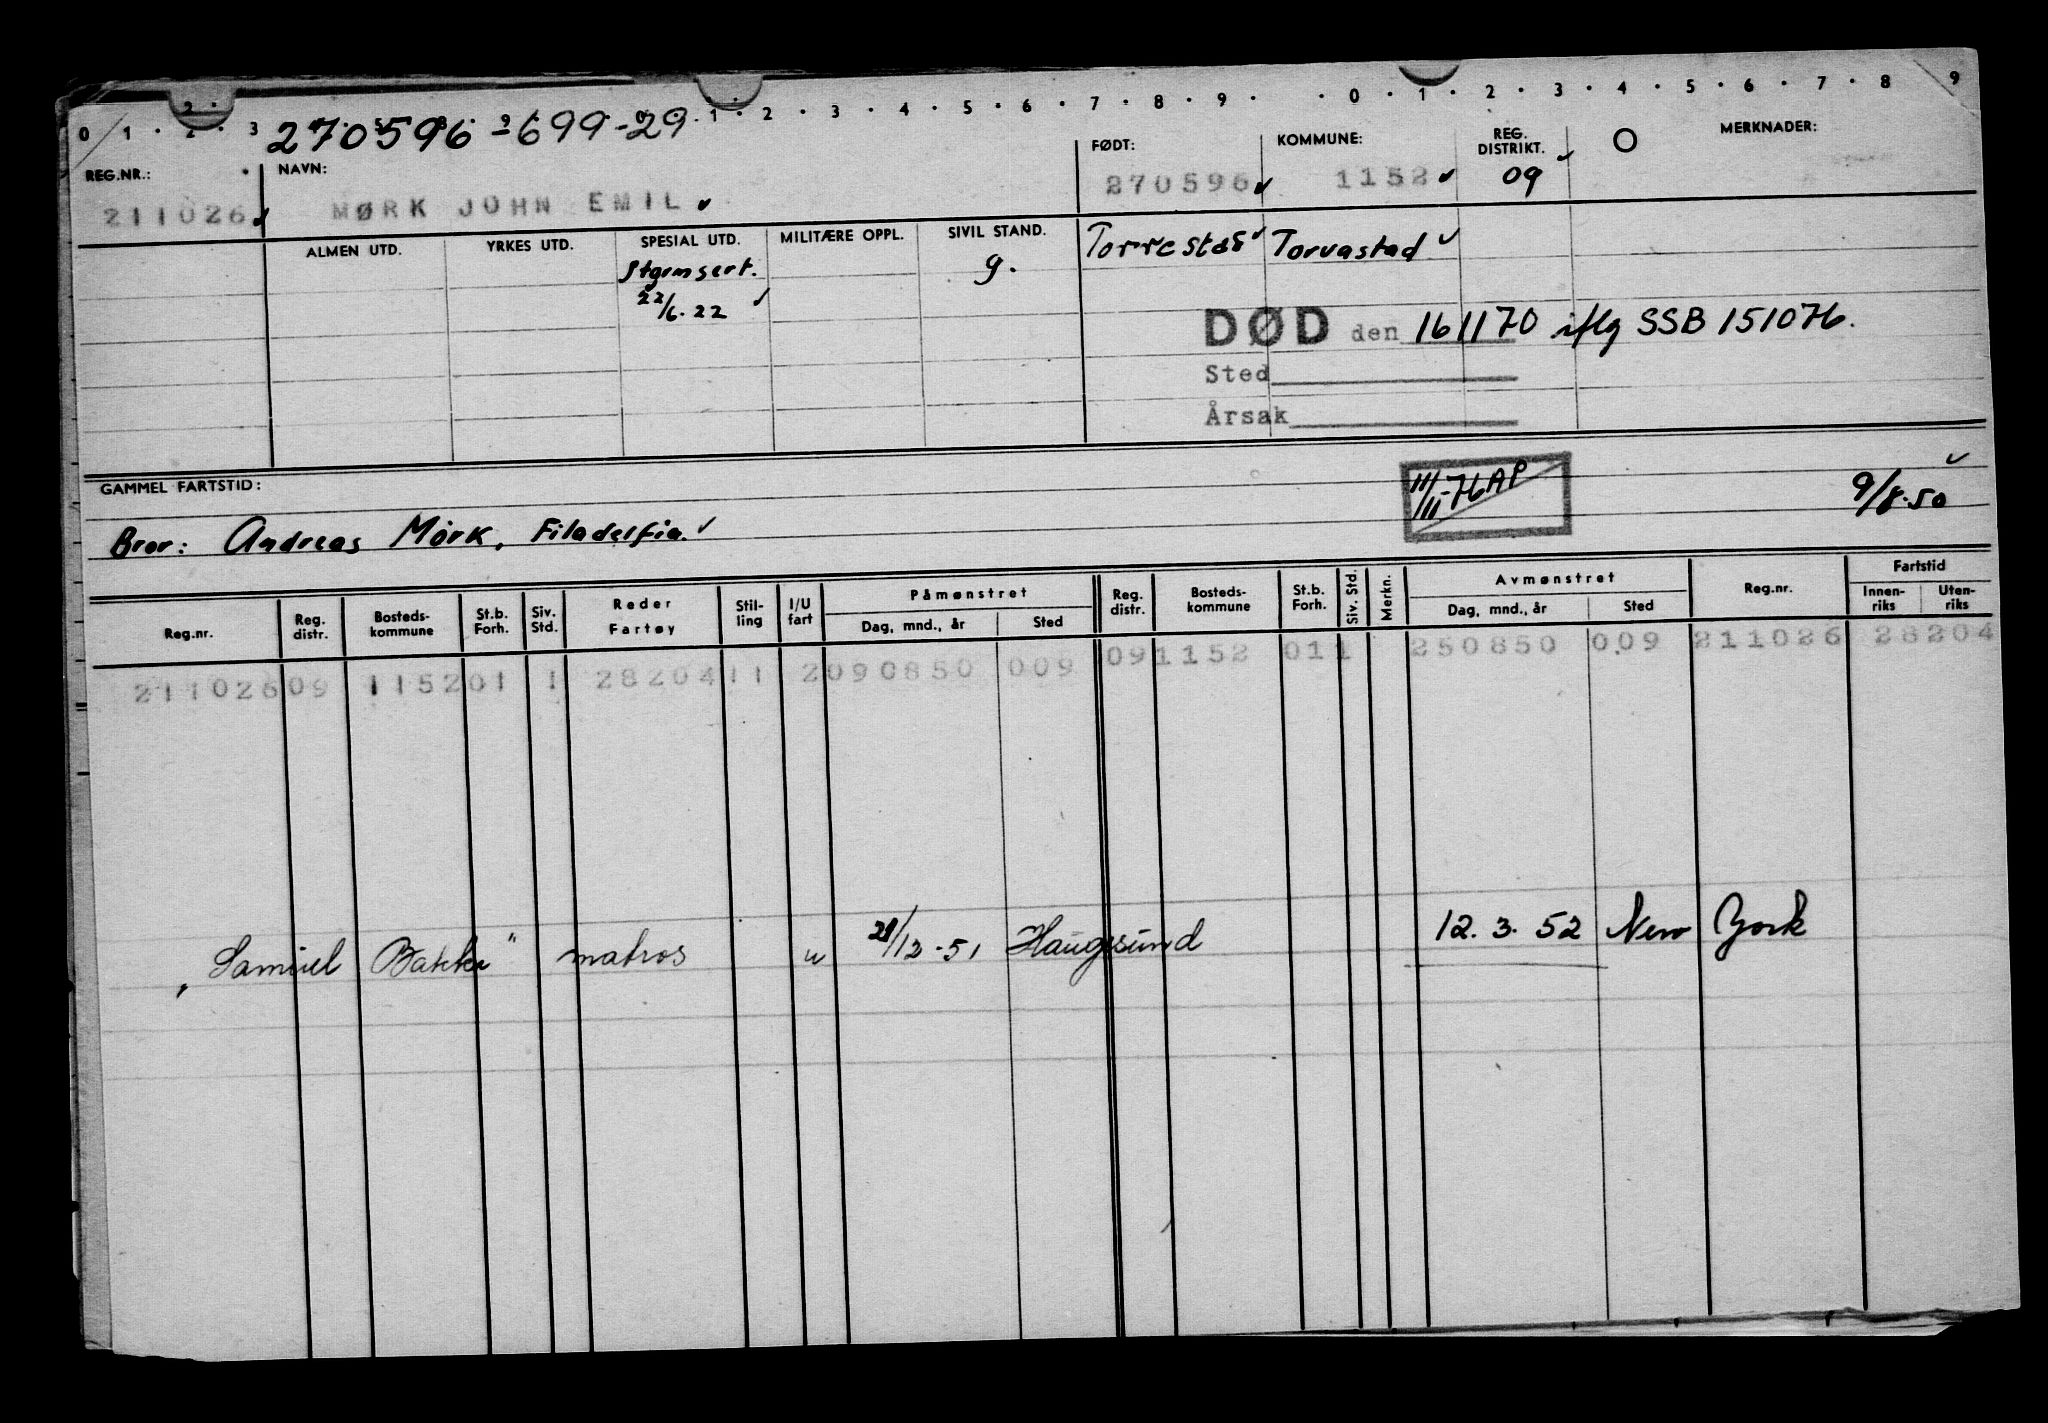 0 1 · 2 · 3 · 1 · 2 · 3 · 4 · 5 · 6 · 7 · 8 · 9 · · 0 · 1 · 2 · 3 · 4 · 5 · 6 · 7 · 8 9
270596-699-29
REG.NR.: NAVN: FØDT: KOMMUNE: REG. DISTRIKT. O MERKNADER:
211026 MØRK JOHN EMIL 270596 1152 09
ALMEN UTD. YRKES UTD. SPESIAL UTD. MILITÆRE OPPL. SIVIL STAND. Torvastad
g.
22/6.22
DØD den 161170 iflg SSB 151076.
Sted
Årsak
GAMMEL FARTSTID: 9/8.50
III/11-76 AP
Bror: Andreas Mørk, Filadelfia.
Reg.nr. Reg. distr. Bosteds-kommune St.b. Forh. Siv. Std. Reder Fartøy Stil-ling I/U fart Påmønstret Dag, mnd., år Sted Reg. distr. Bosteds-kommune St.b. Forh. Siv. Std. Merkn. Avmønstret Dag, mnd., år Sted Reg.nr. Fartstid Innen-riks Uten-riks
211026 09 1152 01 1 28204 11 2 090850 009 09 1152 01 1 250850 009 211026 28204
"Samuel Bakke" matros u 21/12-51 Haugesund 12.3.52 New York